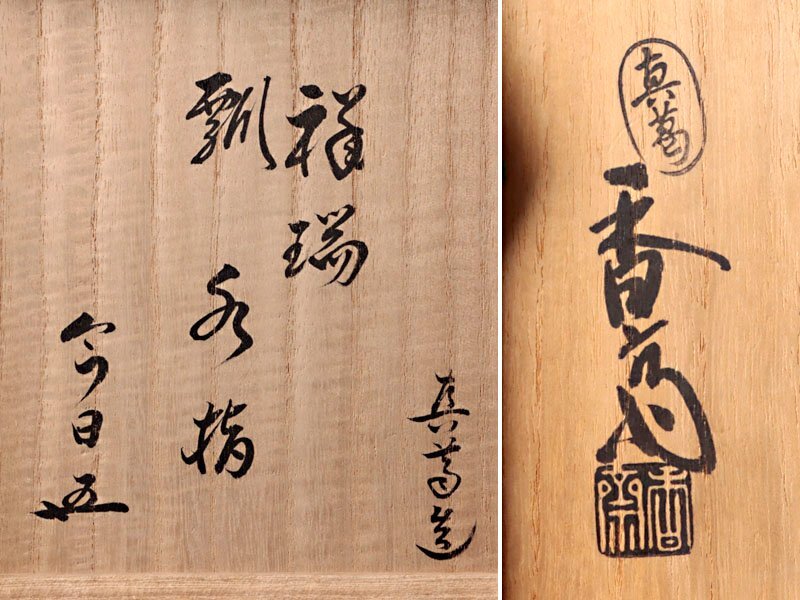 真葛造
祥瑞
瓢 水指
今日
真葛
香斎
香齋